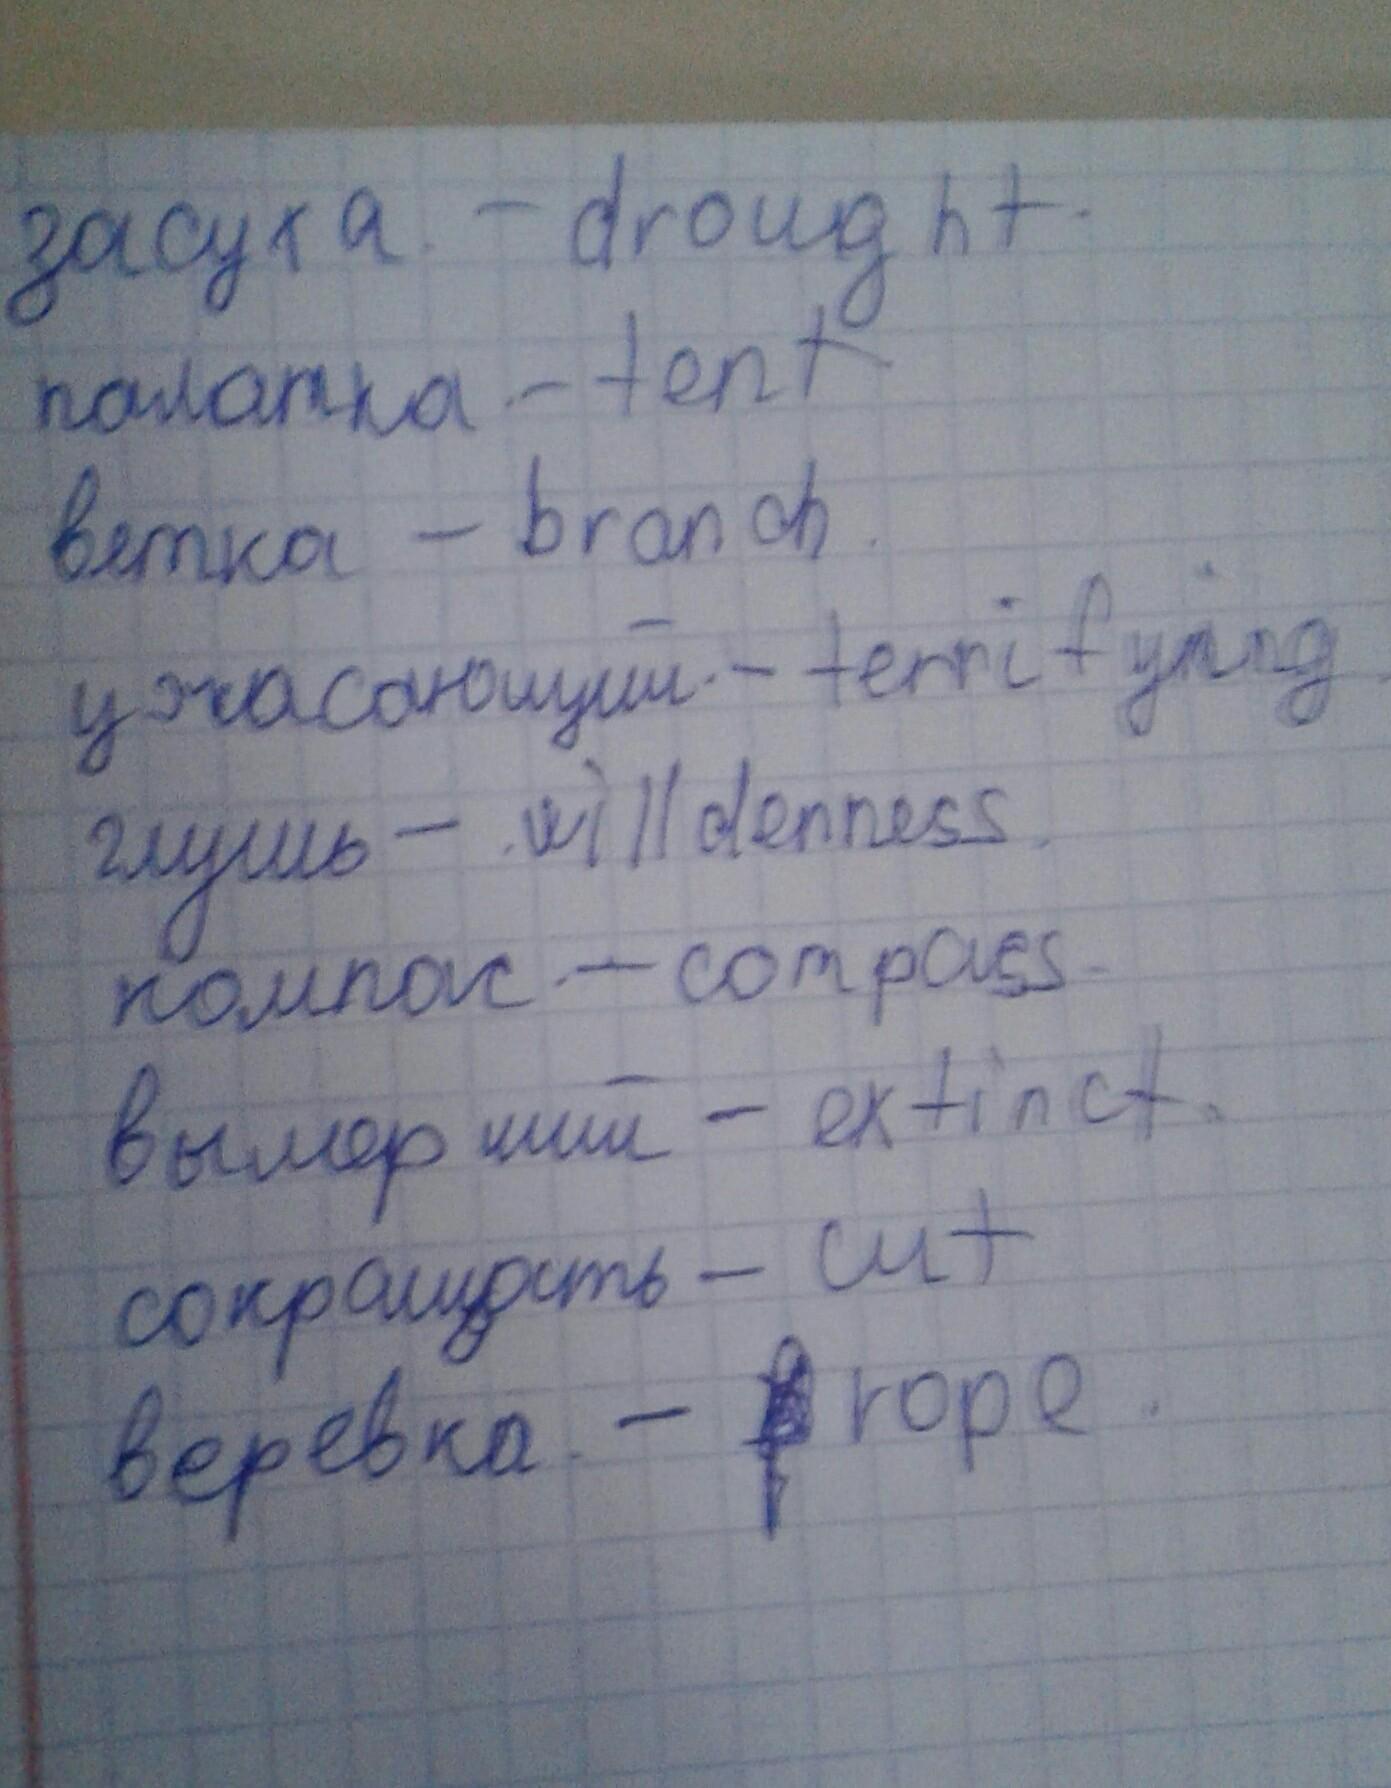 засуха. - drought.
палатка - tent
ветка - branch.
ужасающий - terrifying
глушь - willdenness.
компас - compass.
вымерший - extinct.
сокращать - cut
веревка. - rope.